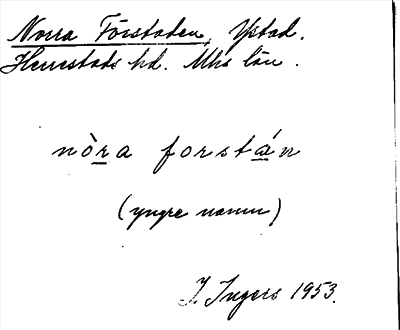 Norra Förstaden, Ystad.
Herrestads hd. Mhs län.
nòra forstán
(yngre namn)
I. Ingers 1953.